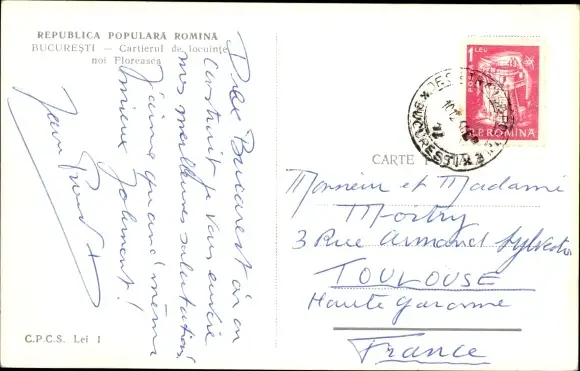 REPUBLICA POPULARĂ ROMÎNĂ
BUCUREȘTI — Cartierul de locuințe
noi Floreasca
De Bucarest où on
construit je vous envoie
mes meilleures salutations,
J'aime quand même
mieux
Jean
C.P.C.S. Lei 1
1 LEU
R.P. ROMINA
BUCUREȘTI
CARTE
Monsieur et Madame
Moitry
3 Rue Armand Sylvestre
TOULOUSE
Haute Garonne
France